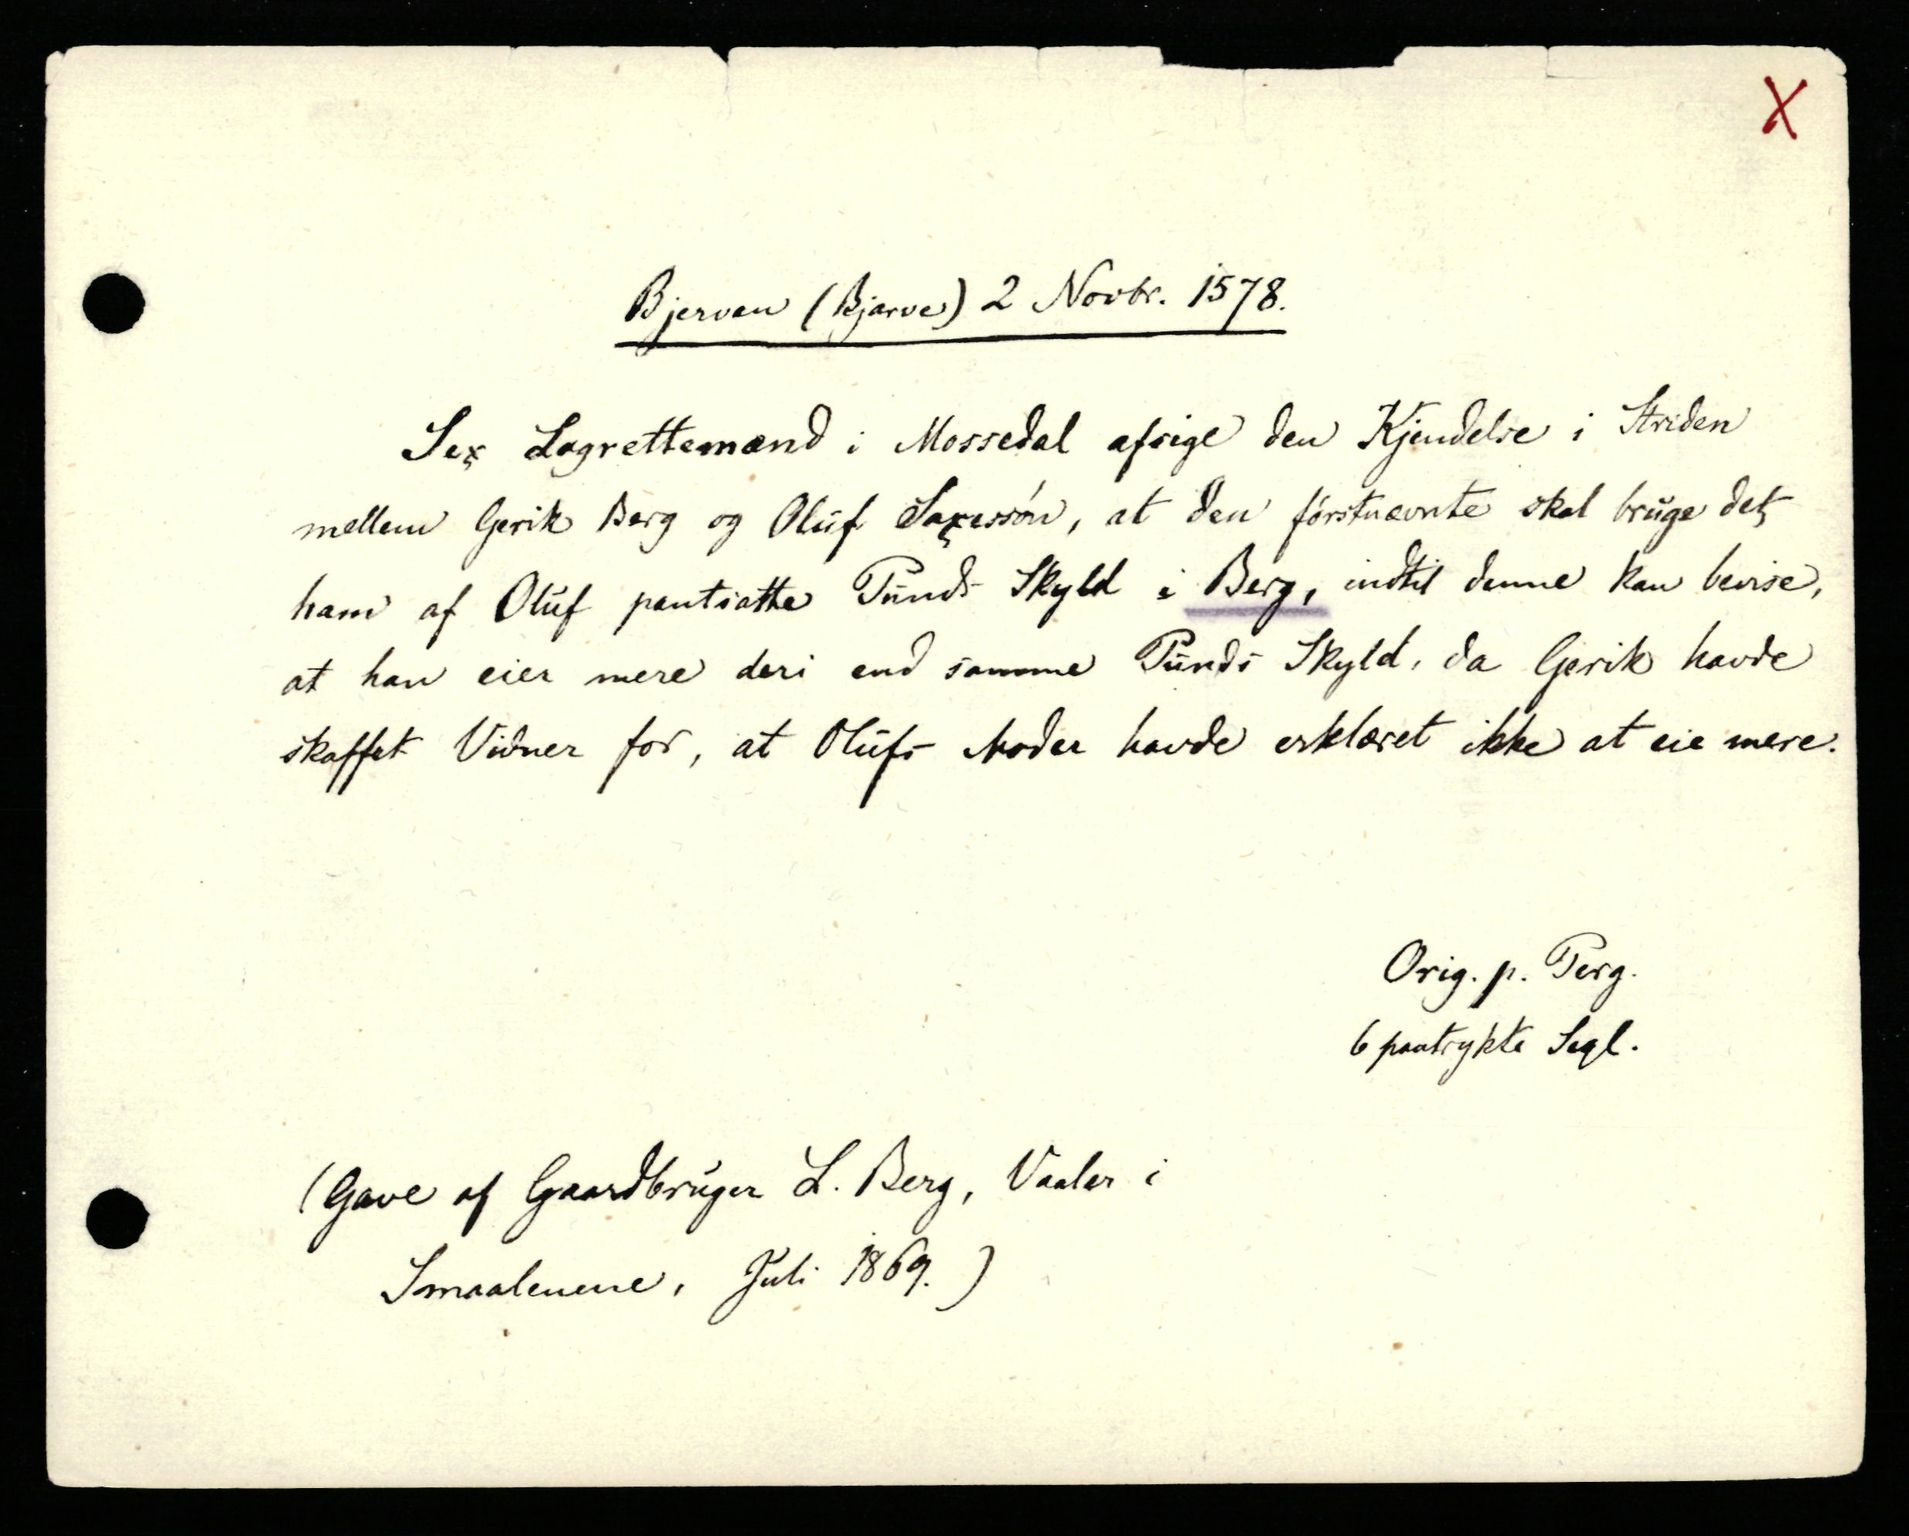 X
Bjerven (Bjarve) 2 Novbr. 1578.
Sex Lagrettemænd i Mossedal afsige den Kjendelse i Striden
mellem Gerik Berg og Oluf Saxessøn, at den førstnævnte skal bruge det
ham af Oluf pantsatte Punds Skyld i Berg, indtil denne kan bevise,
at han eier mere deri end samme Punds Skyld, da Gerik havde
skaffet Vidner for, at Olufs Moder havde erklæret ikke at eie mere.
Orig. p. Perg.
6 paatrykte Segl.
(Gave af Gaardbruger L. Berg, Vaaler i
Smaalenene, Juli 1869.)